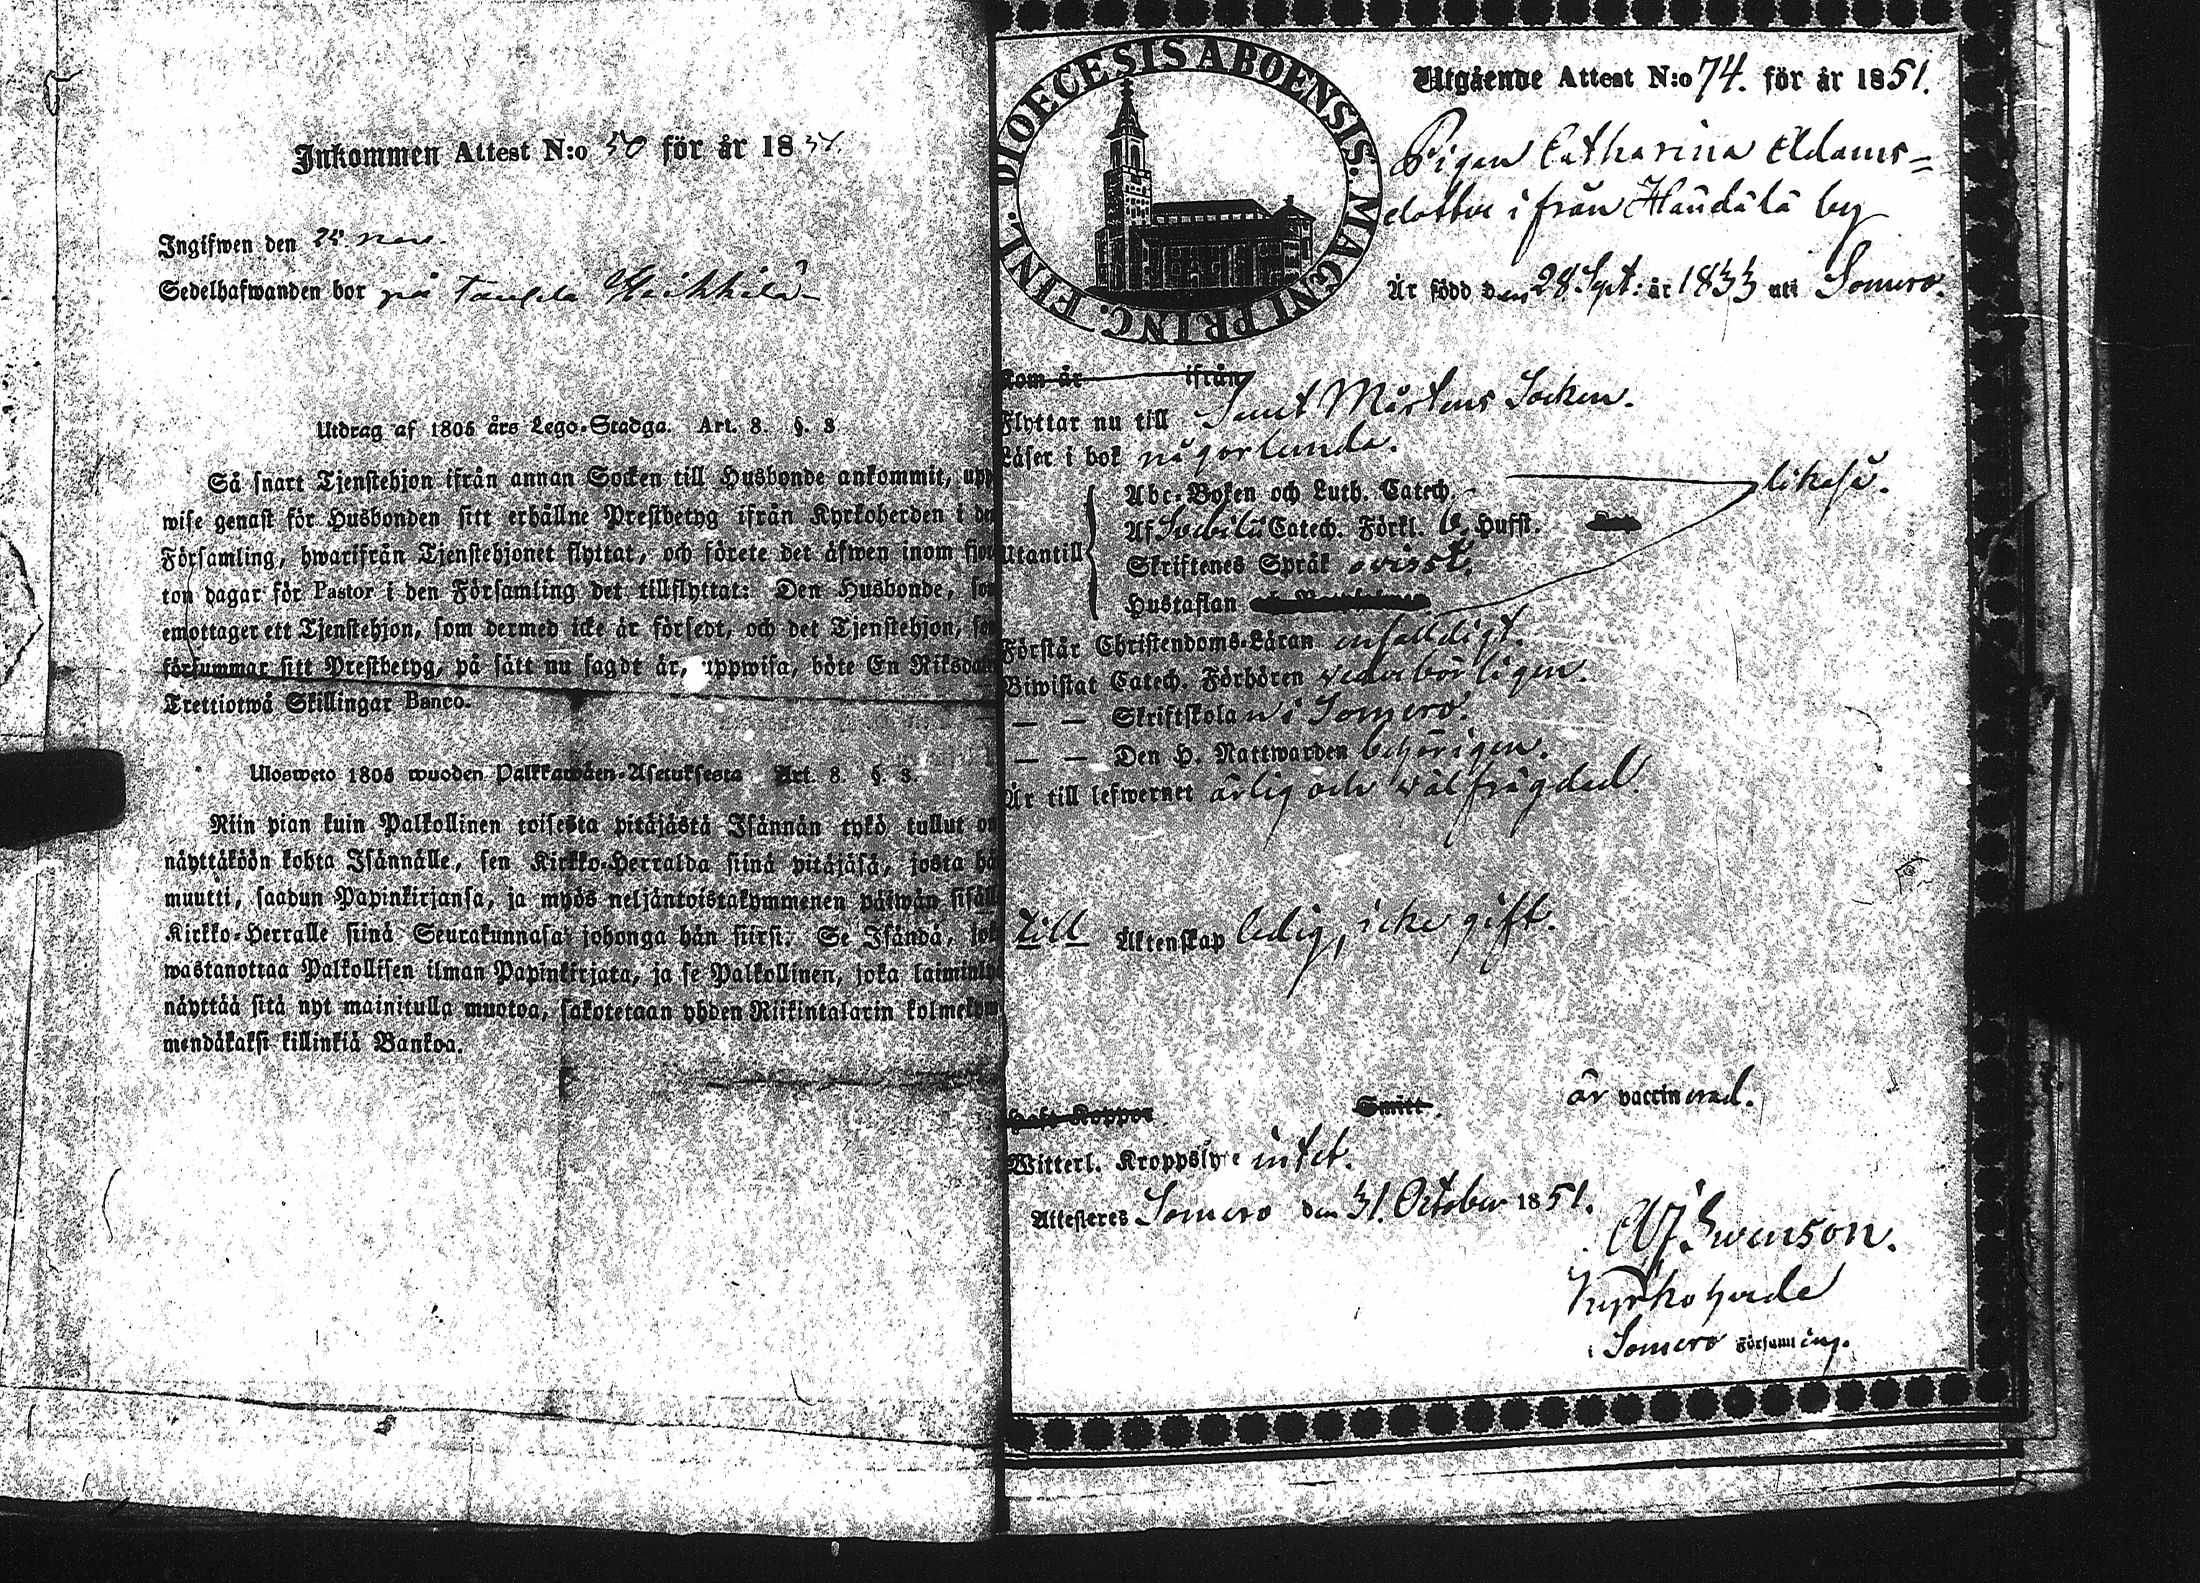 Inkommen Attest N:o 50 för år 1851.
Ingifwen den 25 nov.
Sedelhafwanden bor på Heikkilä
Utdrag af 1805 års Lego-Stadga. Art. 8. §. 3
Så snart Tjenstehjon ifrån annan Socken till Husbonde ankommit, upp
wise genast för Husbonden sitt erhållne Prestbetyg ifrån Kyrkoherden i de
Församling, hwarifrån Tjenstehjonet flyttat, och förete det äfwen inom fjor
ton dagar för Pastor i den Församling det tillflyttat: Den Husbonde, som
emottager ett Tjenstehjon, som dermed icke är försedt, och det Tjenstehjon, som
försummar sitt Prestbetyg, på sätt nu sagdt är, uppwisa, böte En Riksdaler
Trettiotwå Skillingar Banco.
Ulosweto 1805 wuoden Palkkawäen-Asetuksesta Art. 8. §. 3.
Niin pian kuin Palkollinen toisesta pitäjästä Isännän tykö tullut on
näyttäköön kohta Isännälle, sen Kirkko-Herralda siinä pitäjäsä, josta hä
muutti, saadun Papinkirjansa, ja myös neljäntoistakymmenen päiwän sisäll
Kirkko-Herralle siinä Seurakunnasa johonga hän siirsi. Se Isändä, jok
wastanottaa Palkollisen ilman Papinkirjata, ja se Palkollinen, joka laiminly
näyttää sitä nyt mainitulla muotoa, sakotetaan yhden Riikintalarin kolmekym
mendäkaksi killinkiä Bankoa.
FINL. DIOECESIS ABOENSIS. MAGNI PRINC.
Utgående Attest N:o 74. för år 1851.
Pigan Catharina Adams=
dotter ifrån Häntälä by
Är född den 28 Sept: år 1833 uti Somero.
Kom år ifrån
Flyttar nu till Sanct Mårtens Socken.
Läser i bok någorlunda.
Abc-Boken och Luth. Catech. likaså.
Af Swebilii Catech. Förkl. 6. Hufst.
Utantill
Skriftenes Språk ovisst.
Hustaflan
Förstår Christendoms-Läran enfalldigt.
Biwistat Catech. Förhören vederbörligen.
— — Skriftskolan i Somero.
— — Den H. Nattwarden behörigen.
Är till lefwernet ärlig och välfrägdad.
till Äktenskap ledig, icke gift.
Haft Koppor Smitt. är vaccinerad.
Witterl. Kroppslyte intet.
Attesteres Somero den 31. October 1851.
Swenson.
Kyrkoherde
i Somero Församling.